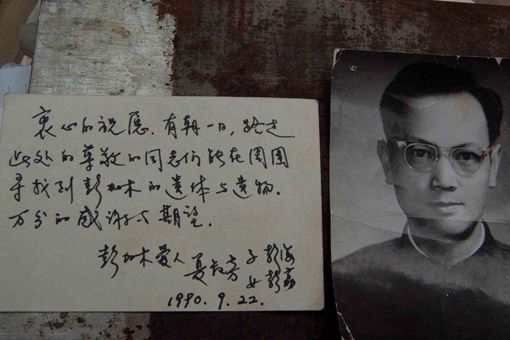 衷心的祝愿,有朝一日,路过
此处的尊敬的同志们能在周围
寻找到彭加木的遗体与遗物.
万分的感谢与期望.
彭加木爱人 夏叔芳 子彭海
女彭荔
1990.9.22.